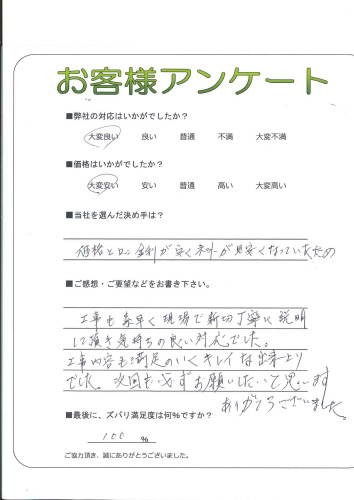 お客様アンケート
■弊社の対応はいかがでしたか？
大変良い 良い 普通 不満 大変不満
■価格はいかがでしたか？
大変安い 安い 普通 高い 大変高い
■当社を選んだ決め手は？
価格とローン金利が安く が目安くなっていたの
■ご感想・ご要望などをお書き下さい。
工事も素早く現場で親切丁寧に説明
して頂き気持ちの良い対応でした。
工事内容も満足のいくキレイな出来上り
でした。次回も必ずお願いしたいと思います
ありがとうございました。
■最後に、ズバリ満足度は何%ですか？
100 %
ご協力頂き、誠にありがとうございました。